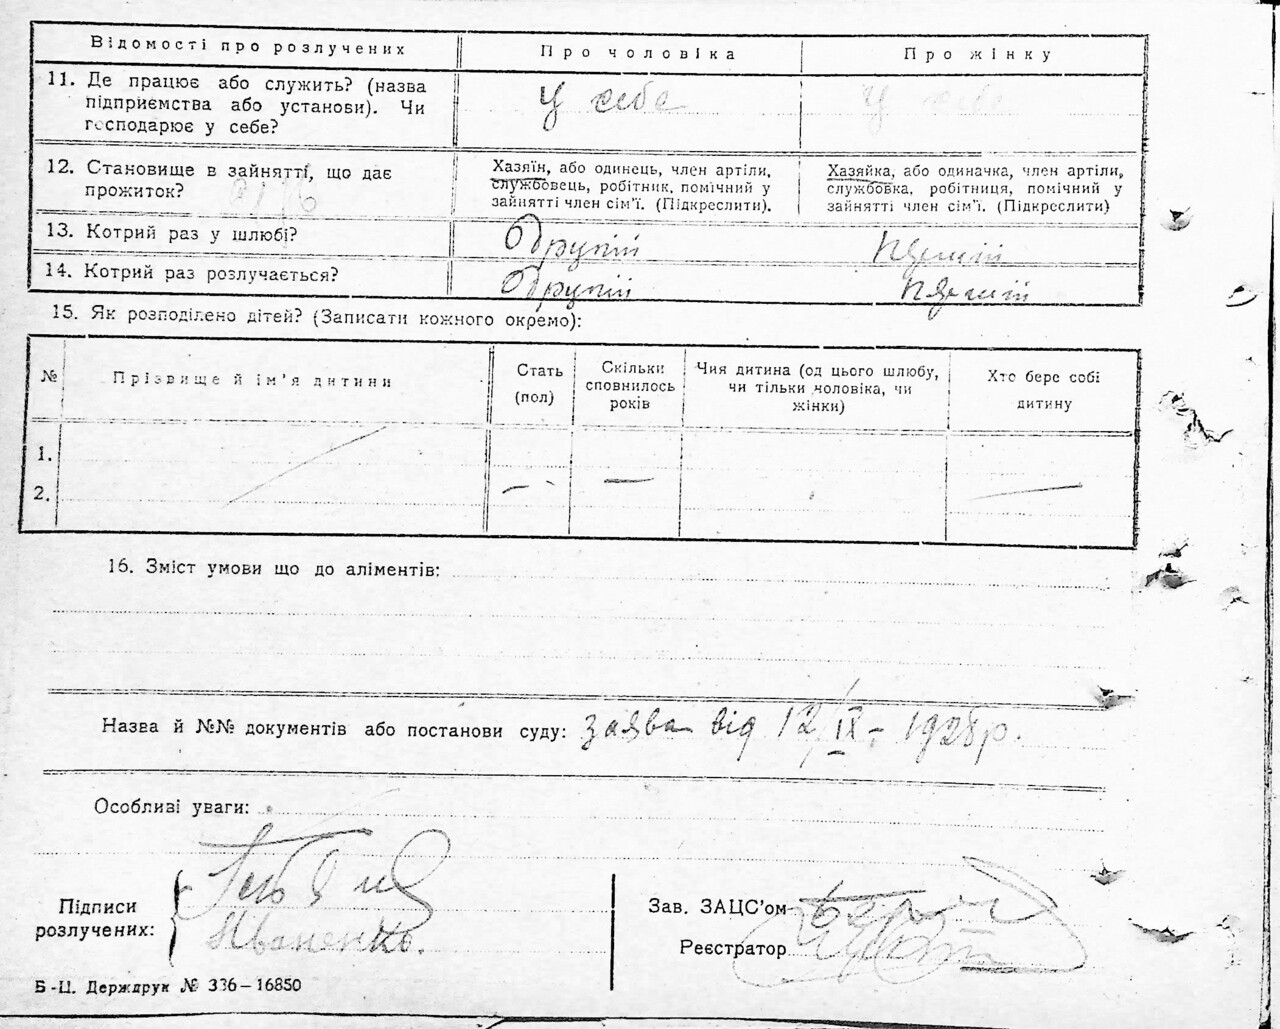 Відомості про розлучених Про чоловіка Про жінку
11. Де працює або служить? (назва підприємства або установи). Чи господарює у себе?
у себе у себе
12. Становище в зайнятті, що дає прожиток?
Хазяїн, або одинець, член артіли,
службовець, робітник, помічний у
зайнятті член сім'ї. (Підкреслити).
Хазяйка, або одиначка, член артіли,
службовка, робітниця, помічний у
зайнятті член сім'ї. (Підкреслити)
13. Котрий раз у шлюбі? Другий
14. Котрий раз розлучається? Другий
15. Як розподілено дітей? (Записати кожного окремо):
№ Прізвище й ім'я дитини
Стать
(пол)
Скільки
сповнилось
років
Чия дитина (од цього шлюбу,
чи тільки чоловіка, чи
жінки)
Хто бере собі
дитину
1.
2.
16. Зміст умови що до аліментів:
Назва й №№ документів або постанови суду: заява від 12/IX - 1928 р.
Особливі уваги:
Підписи
розлучених:
Иваненко.
Зав. ЗАЦС'ом
Реєстратор
Б-Ц. Держдрук № 336—16850